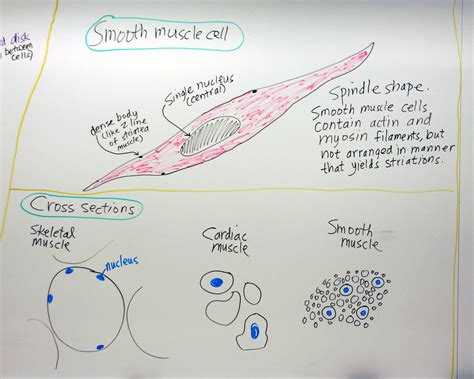 disk
between
cells)
Smooth muscle cell
Single nucleus
(central)
dense body
(like Z line
of striated
muscle)
Spindle shape.
Smooth muscle cells
contain actin and
myosin filaments, but
not arranged in manner
that yields striations.
Cross sections
Skeletal
muscle
nucleus
Cardiac
muscle
Smooth
muscle